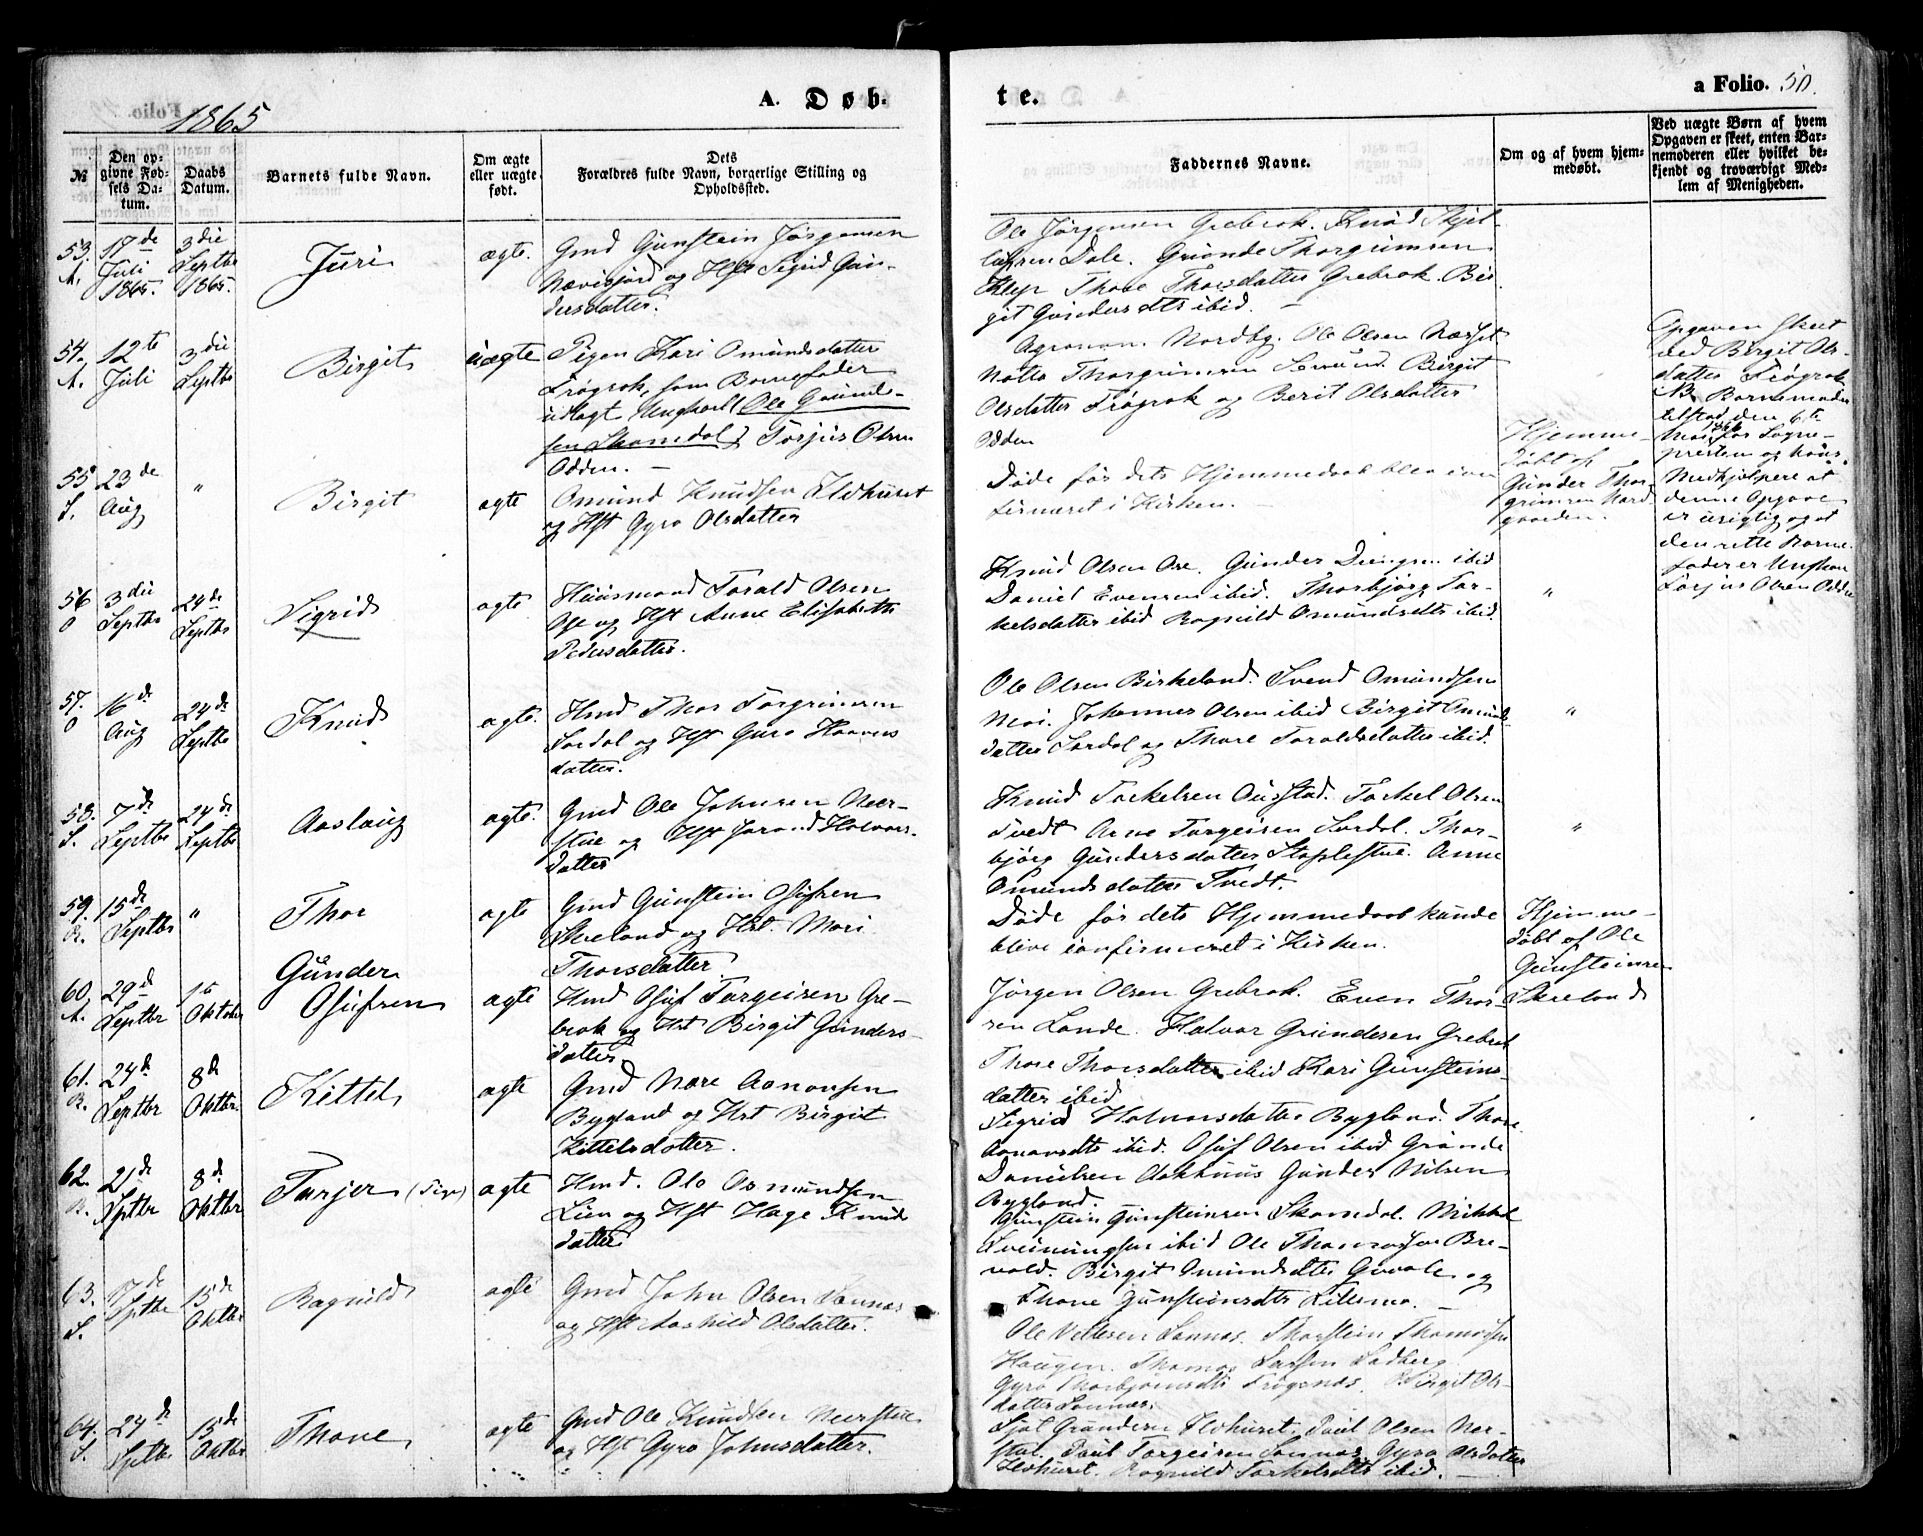 1865
A. Døb-
te.
a Folio. 50.
№
Den opgivne Fødsels Datum.
Daabs Datum.
Barnets fulde Navn.
Om ægte eller uægte født.
Dets Forældres fulde Navn, borgerlige Stilling og Opholdssted.
Faddernes Navne.
Om og af hvem hjemmedøbt.
Ved uægte Børn af hvem Opgaven er skeet, enten Barnemoderen eller hvilket bekjendt og troværdigt Medlem af Menigheden.
53. A. 17de Juli 1865. 3die Septbr 1865. Juri ægte.
Gmd Gunstein Jørgensen
og Hst Sigrid Gun-
dersdatter.
Ole Jørgensen Grebrok. Knud
Dale. Grunde Thorgrimsen
Thone Thorsdatter Grebrok. Bir-
git Gundersdtr ibid.
54. A. 12te Juli 3die Septbr Birgit uægte
Pigen Kari Omundsdatter
Frøyrok, som Barnefader
udlagt Ungkarl Ole Gunnd-
sen Skomedal, Torjus Olsen
Odden.
Agronom Nordby. Ole Olsen
Thorgrimsen Birgit
Olsdatter Frøyrok og Berit Olsdatter
Odden
Opgaven skeet
ved Birgit Ols-
datter Frøyrok
NB Barnemoder
tilstod den 6te
for Sogne-
presten og hans
Medhjelpere at
denne Opgave
er urigtig og at
den rette Barne-
fader er Ungkarl
Torjus Olsen Odden
55 S. 23de Aug " Birgit ægte
Omund Knudsen Flohuset
og Hst Gyro Olsdatter
Døde før dets Hjemmedaab blev con-
firmeret i Kirken.
Hjemme-
døbt af
Gunder Thor-
grimsen Nord-
gaarden.
56 O 3die Septbr 24de Septbr Sigrid ægte
Huusmand Torald Olsen
Ose og Hst Anne Elisabeth
Pedersdatter.
Knud Olsen Ose. Gunder ibid
Daniel Evensen ibid. Thorbjørg Tor-
kelsdatter ibid Ragnild Omundsdtr ibid.
"
57. O 16de Aug 24de Septbr Knud ægte.
Hmd Thor Torgrimsen
Sordal og Hst Guro Haavors
datter.
Ole Olsen Birkeland. Svend Omundsen
Moi. Johannes Olsen ibid Birgit Omunds-
datter Sordal og Thore Toraldsdatter ibid.
"
58. S. 7de Septbr 24de Septbr Aaslaug ægte.
Gmd Ole Johnsen Neer-
stue og Hst Jorand Halvors-
datter
Knud Torkelsen Ousstad. Torkel Olsen
Tvedt Arne Torgeisen Sordal. Thor-
bjørg Gundersdatter Stoplestue. Anne
Omundsdatter Tvedt.
"
59. B. 15de Septbr " Thor ægte
Gmd Gunstein Osufsen
Skreland og Hst. Mari
Thorsdatter
Døde før dets Hjemmedaab kunde
blive confirmeret i Kirken.
Hjemme-
døbt af Ole
Gunsteinsen
Skreland
60. A. 29de Septbr 1te Oktober Gunder
Osufsen ægte
Hmd Osuf Torgeisen Gre-
brok og Hst Birgit Gunders-
datter
Jørgen Olsen Grebrok. Even Thor-
sen Lande. Halvor Grundesen Grebrok
Thore Thorsdatter ibid Kari Gunsteins-
datter ibid
61. B. 24de Septbr 8de Oktbr Kittel ægte
Gmd Nare Aanonsen
Bygland og Hst Birgit
Kittelsdatter.
Sigrid Halvorsdatter Bygland. Thore
Aanonsdtr ibid. Osuf Olsen ibid Grunde
Danielsen Gunder Nilsen
Bygland.
62. B. 21de Septbr 8de Oktbr Turjer ægte
Hmd. Ole Osmundsen
Lien og Hst Hage Knuds
datter
Gunstein Gunsteinsen Skomedal. Mikkel
Sveinungsen ibid Ole Thomassen Bre-
vold. Birgit Omundsdtr og
Thone Gunsteinsdtr Litlemo.
63. S. 7de Septbr 15de Oktbr Ragnild ægte
Gmd John Olsen Sannas
og Hst Aashild Olsdatter.
Ole Sannas. Thorstein Thomassen
Haugen. Thomas Larssen
Gyro Thorbjørnsdtr Frøysnæs. Birgit Ols-
datter Sannas.
64. S. 24de Septbr 15de Oktbr Thone ægte
Gmd Ole Knudsen Neerstue
og Hst Gyro Johnsdatter.
Grundesen Flohuset. Paul Olsen Ner-
stue. Paul Torgeisen Sannas Gyro Olsdatter
Flohuset. Ragnild Torkelsdtr ibid.